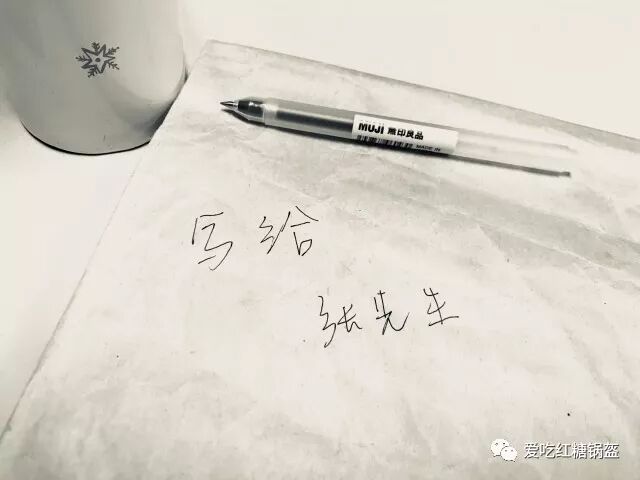 MUJI 無印良品
MADE IN
写给
张先生
爱吃红糖锅盔